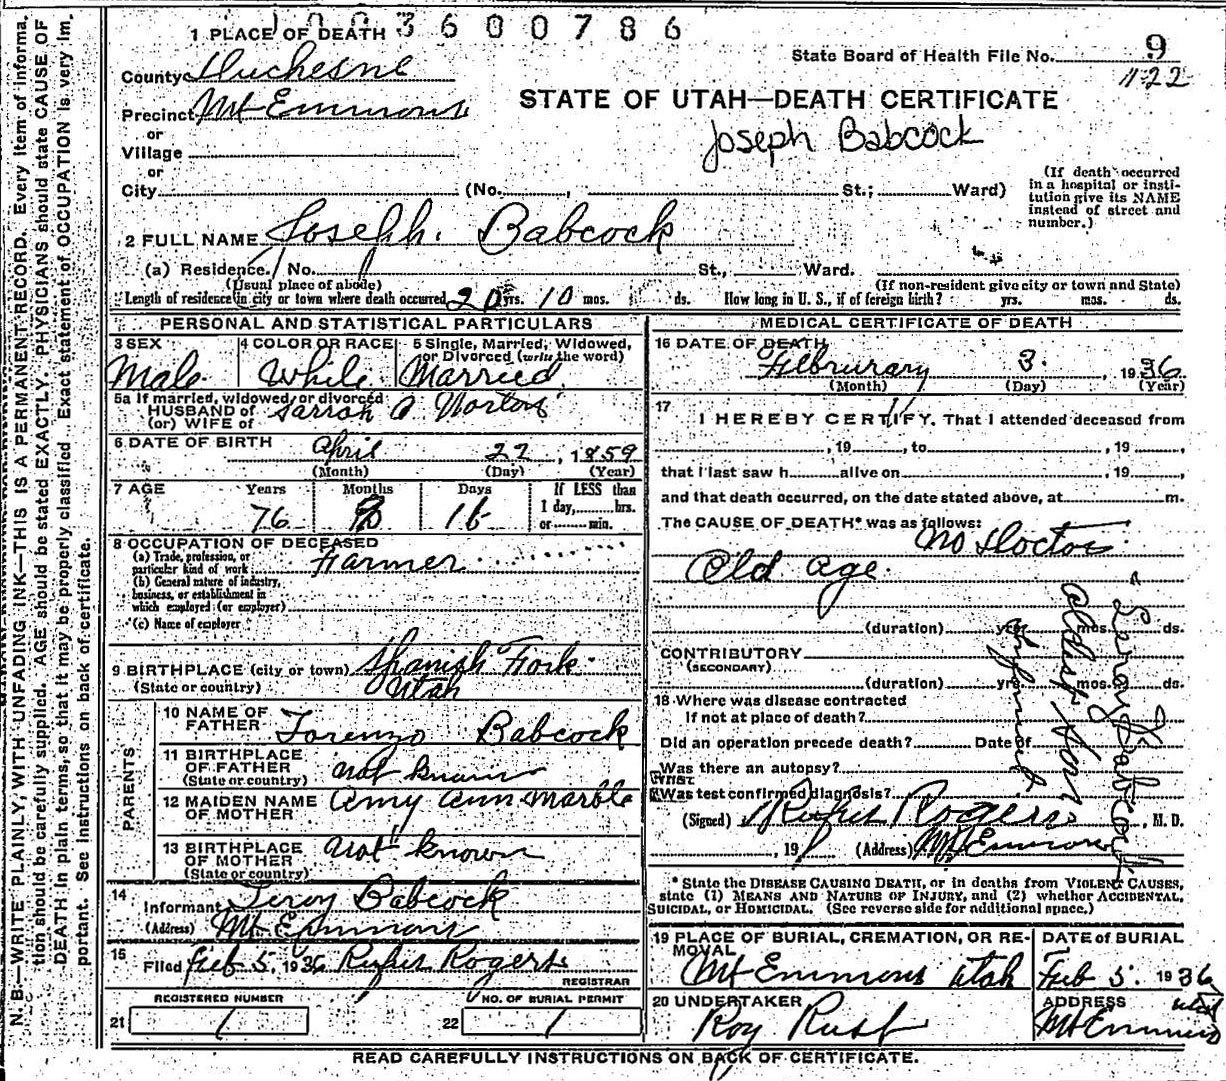 1003600786
1 PLACE OF DEATH
State Board of Health File No. 9
1122
County Duchesne
STATE OF UTAH—DEATH CERTIFICATE
Precinct Mt Emmons
Joseph Babcock
or
Village
or
City (No. , St.; Ward)
(If death occurred
in a hospital or insti-
tution give its NAME
instead of street and
number.)
2 FULL NAME Joseph. Babcock
(a) Residence. No. St., Ward.
(Usual place of abode)
(If non-resident give city or town and State)
Length of residence in city or town where death occurred 20 yrs. 10 mos. ds. How long in U. S., if of foreign birth? yrs. mos. ds.
PERSONAL AND STATISTICAL PARTICULARS
3 SEX
Male.
4 COLOR OR RACE
White
5 Single, Married, Widowed,
or Divorced (write the word)
Married
5a If married, widowed, or divorced
HUSBAND of
(or) WIFE of
Sarrah A Norton
6 DATE OF BIRTH
April 22, 1859
(Month) (Day) (Year)
7 AGE Years Months Days
76 16
If LESS than
1 day, hrs.
or min.
8 OCCUPATION OF DECEASED
(a) Trade, profession, or
particular kind of work Farmer
(b) General nature of industry,
business, or establishment in
which employed (or employer)
(c) Name of employer
9 BIRTHPLACE (city or town) Spanish Fork.
(State or country) Utah
PARENTS
10 NAME OF
FATHER Lorenzo Babcock
11 BIRTHPLACE
OF FATHER not known
(State or country)
12 MAIDEN NAME
OF MOTHER Amy Ann Marble
13 BIRTHPLACE
OF MOTHER not known
(State or country)
14
Informant Leroy Babcock
(Address) Mt Emmons
15
Filed Feb 5, 1936 Rufus Rogers
REGISTRAR
REGISTERED NUMBER
21 1
NO. OF BURIAL PERMIT
22 1
MEDICAL CERTIFICATE OF DEATH
16 DATE OF DEATH
Februrary 3. , 1936
(Month) (Day) (Year)
17
I HEREBY CERTIFY, That I attended deceased from
, 19 , to , 19 ,
that I last saw h alive on , 19 ,
and that death occurred, on the date stated above, at m.
The CAUSE OF DEATH* was as follows:
No Doctor
Old age.
(duration) yrs. mos. ds.
CONTRIBUTORY
(SECONDARY)
(duration) yrs. mos. ds.
18 Where was disease contracted
If not at place of death?
Did an operation precede death? Date of
Was there an autopsy?
What test confirmed diagnosis?
(Signed) Rufus Rogers , M. D.
, 19 (Address) Mt Emmons
Leroy Babcock
oldest son
informant
* State the DISEASE CAUSING DEATH, or in deaths from VIOLENT CAUSES,
state (1) MEANS AND NATURE OF INJURY, and (2) whether ACCIDENTAL,
SUICIDAL, or HOMICIDAL. (See reverse side for additional space.)
19 PLACE OF BURIAL, CREMATION, OR RE-
MOVAL
Mt Emmons Utah
DATE of BURIAL
Feb 5. 1936
20 UNDERTAKER
Roy Rust
ADDRESS
Mt Emmons
Utah
READ CAREFULLY INSTRUCTIONS ON BACK OF CERTIFICATE.
N. B.—WRITE PLAINLY, WITH UNFADING INK—THIS IS A PERMANENT RECORD. Every item of informa-
tion should be carefully supplied. AGE should be stated EXACTLY. PHYSICIANS should state CAUSE OF
DEATH in plain terms, so that it may be properly classified. Exact statement of OCCUPATION is very im-
portant. See instructions on back of certificate.